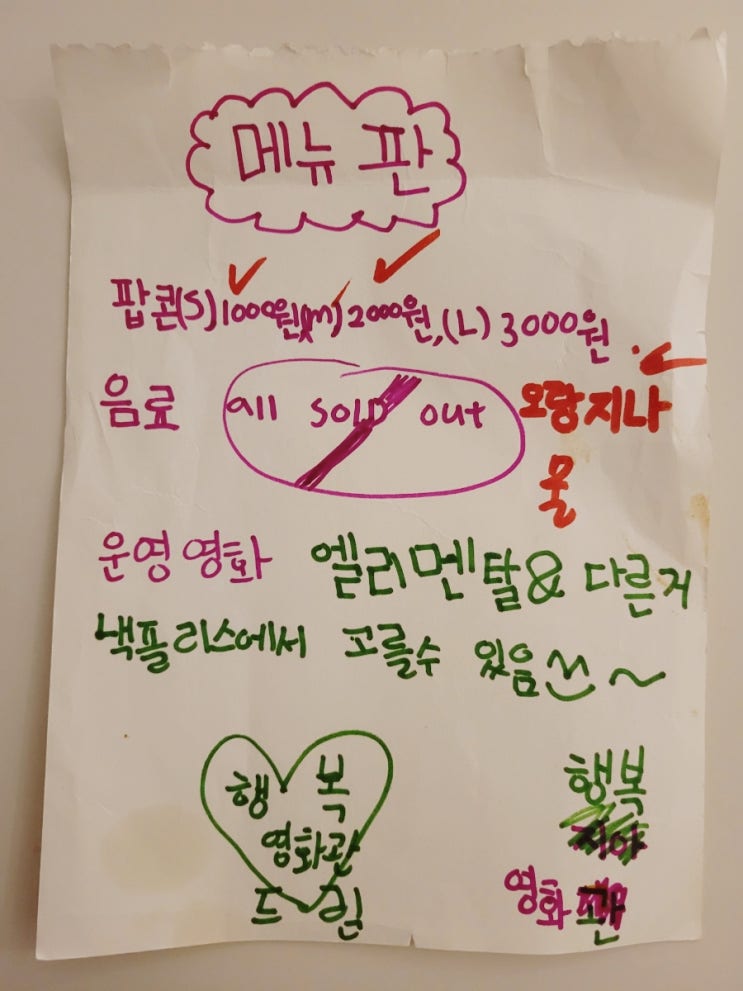 메뉴 판
팝콘(S)1000원,(m)2000원,(L)3000원
음료 all SOLD out 오랑지나
물
운영영화 엘리멘탈& 다른거
낵플리스에서 고를수 있음~
행 복
영화관
드림
행복
영화관